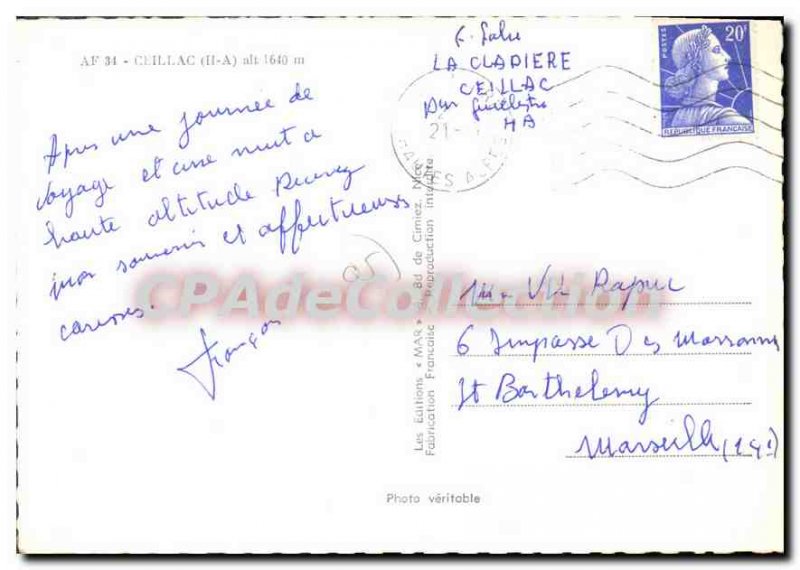 AF 34 - CEILLAC (H-A) alt 1640 m
Apres une journée de
voyage et une nuit a
haute altitude Recevez
mon souvenir et affectueuses
caresses.
François
05
LA CLAPIERE
CEILLAC
par Guillestre
HA
21
HAUTES ALPES
POSTES
20F
REPUBLIQUE FRANÇAISE
Les Editions « MAR » Bd de Cimiez, Nice
Fabrication Française Reproduction interdite
6 Impasse Des Marronniers
St Barthelemy
Marseille (14e)
Photo véritable
CPAdeCollection